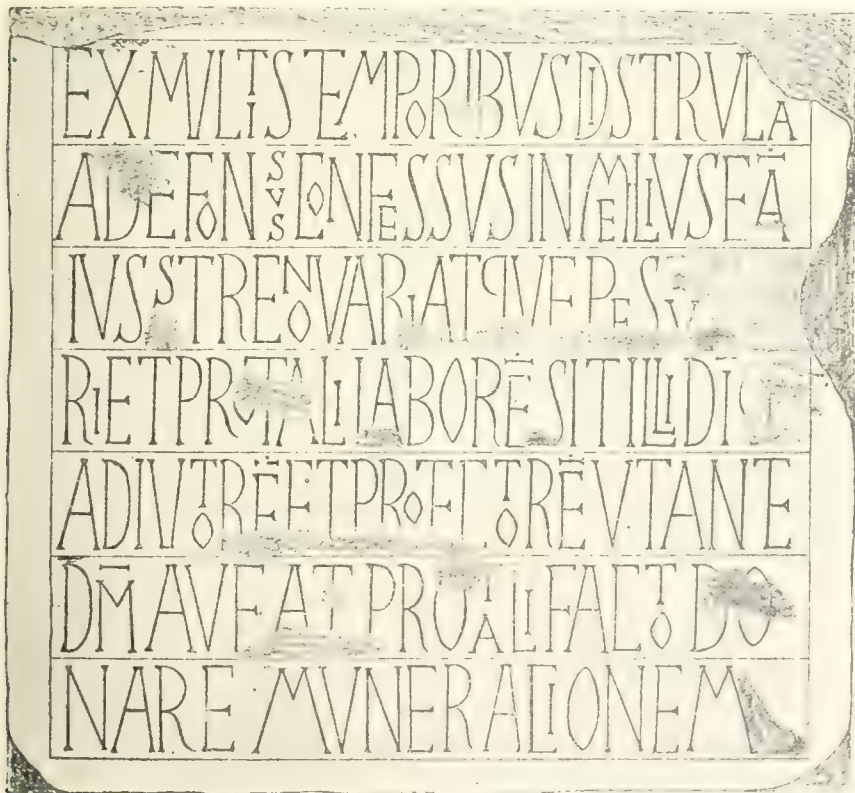 EX MVLTIS TEMPORIBVS DISTRVLA
ADEFONSVS CONFESSVS IN MELIVS EĀ
IVSST RENOVARI ATQVE PESV
RI ET PRO TALI LABORĒ SIT ILLI DĪS
ADIVTORĒ ET PROTECTORĒ VT ANTE
DM̄ AVEAT PRO TALI FACTO DO
NARE MVNERACIONEM